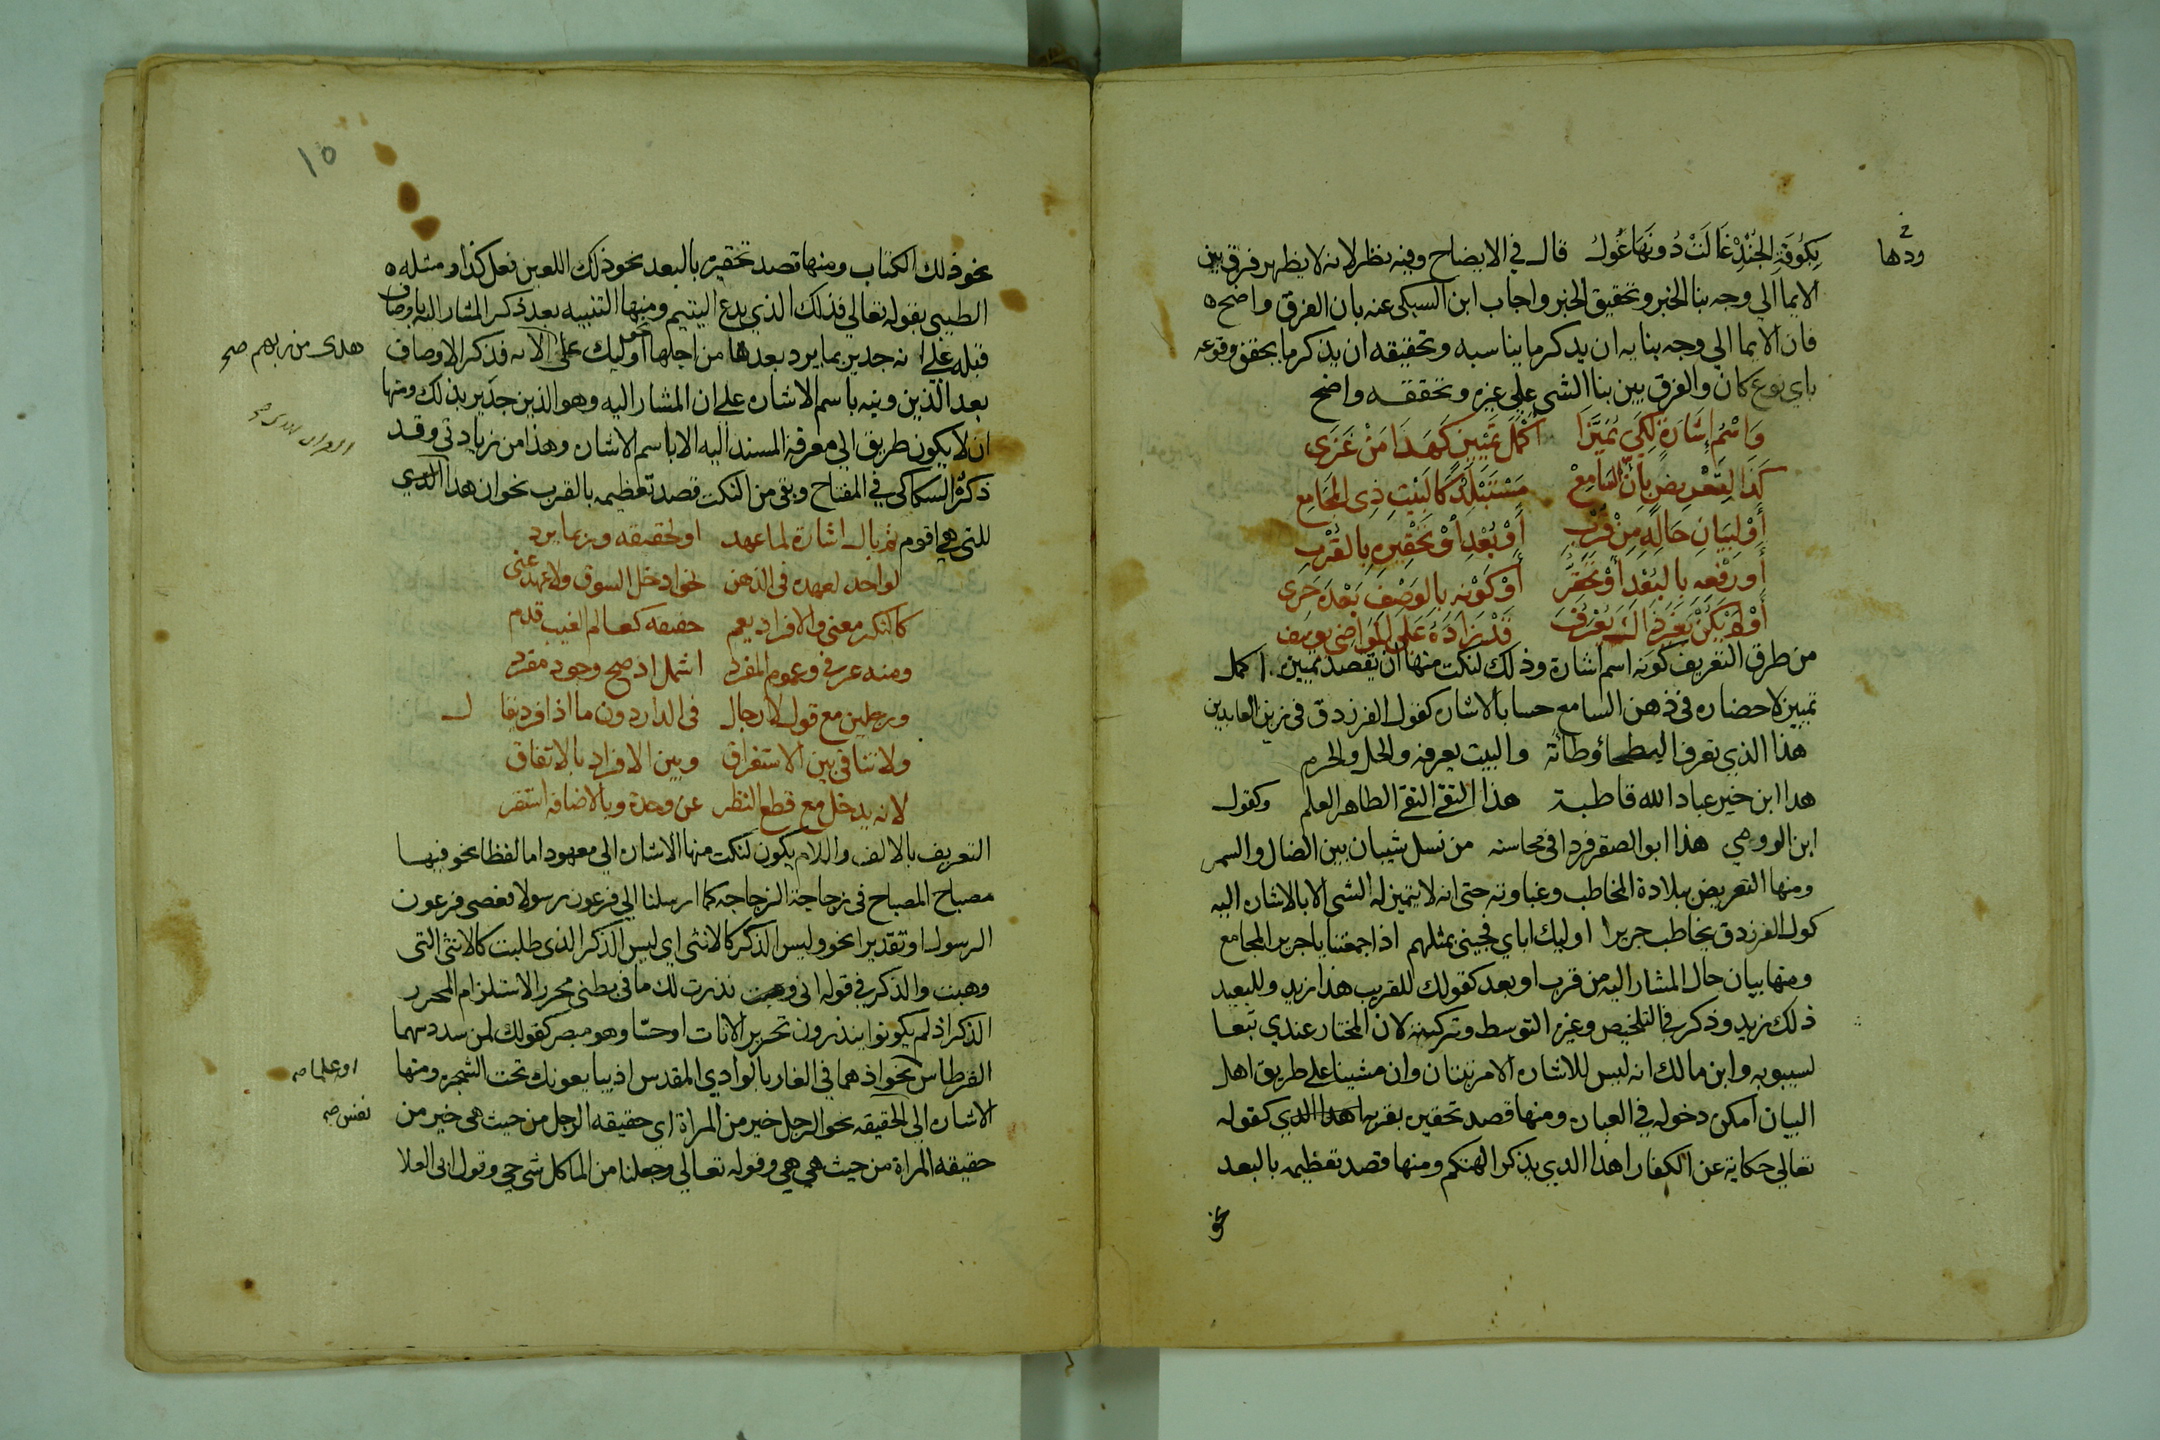 بكوفة الجند غالت دونها غول قال في الايضاح وفيه نظر لانه لا يظهر فرق بين
ودها
الايما الي وجه بنا الخبر وتحقيق الخبر واجاب ابن السبكي عنه بان الفرق واضح
فان الايما الي وجه بنايه ان يذكر ما يناسبه وتحقيقه ان يذكر ما يحقق وقوعه
باي نوع كان والفرق بين بنا الشي علي غيره وتحققه واضح
وَاسْمُ إِشَارَةٍ لِكَي يُمَيَّزَا أكْمَلَ تَمْيِيزٍ كَهَذَا مَنْ غَزَى
كَذَا لِتَعْرِيضٍ بِأَنَّ السَّامِعْ مُسْتَبْلَدٌ كَالْبَيْتِ ذِى الْمَجَامِعِ
أَوْ لِبَيَانِ حَالِهِ مِنْ قُرْبِ أَوْ بُعْدٍ أوْ تَحْقِيرِهِ بِالْقُرْبِ
أَو رَفْعِهِ بِالبُعْدِ أَوْ تَحَقُّرِ أَوْ كَوْنِهِ بِالوَصْفِ بَعْدَهُ حَرِى
أَوْ لَمْ يَكُنْ بِغَيْرِ ذَاكَ يُعْرَفُ قَدْ زَادَهُ عَلَى الْمَوَاضِى يوسف
من طرق التعريف كونه اسم اشارة وذلك لنكت منها ان يقصد تمييزه اكمل
تمييز لاحضاره في ذهن السامع حسا بالاشاره كقول الفرزدق في زين العابدين
هذا الذي تعرف البطحا وطأته والبيت يعرفه والحل والحرم
هدا ابن خير عباد الله قاطبة هذا التقي النقي الطاهر العلم وكقول
ابن الرومي هذا ابو الصقر فردا في محاسنه من نسل شيبان بين الضال والسمر
ومنها التعريض ببلادة المخاطب وغباوته حتى انه لا يتميز له الشي الا بالاشاره اليه
كقول الفرزدق يخاطب جريرا اوليك اباي فجيني بمثلهم اذا جمعتنا يا جرير المجامع
ومنها بيان حال المشار اليه من قرب او بعد كقولك للقريب هذا زيد وللبعيد
ذلك زيد وذكر في التلخيص وغيره التوسط وتركته لان المختار عندي تبعا
لسيبويه وابن مالك انه ليس للاشاره الا مرتبتان وان مشينا علي طريق اهل
البيان امكن دخوله في العباره ومنها قصد تحقيره بقربه كقوله
تعالي حكاية عن الكفار اهذا الدي يذكر الهتكم ومنها قصد تعظيمه بالبعد
نحو
١٥
نحو ذلك الكتاب ومنها قصد تحقيره بالبعد نحو ذلك اللعين فعل كذا ومثله
الطيبي بقوله تعالي فذلك الذي يدع اليتيم ومنها التنبيه بعد ذكر المشار اليه باوصاف
قبله علي انه جدير بما يرد بعدها من اجلها نحو اوليك علي الايه فذكر الاوصاف
هدى من ربهم صح
بعد الذين ونبه باسم الاشاره علي ان المشار اليه وهو الذين جدير بذلك ومنها
ان لا يكون طريق الي معرفة المسند اليه الا باسم الاشاره وهذا من زيادتي وقد
ذكره السكاكي في المفتاح وبقي من النكت قصد تعظيمه بالقرب نحو ان هدا الذي
للتي هي اقوم ثم بال اشارة لما عهد او لحقيقه وربما يرد
لواحد لعهده في الذهن نحو ادخل السوق ولا عهد عنى
كالنكر معنى والافراد يعم حقيقه كعالم الغيب قدم
ومنه عرفي وعموم المفرد اشمل اذ صح وجود مفرد
ورجلين مع قول لا رجال في الدار دون ما اذا فرد يقال
ولا تنافي بين الاستغراق وبين الافراد بالاتفاق
لانه يدخل مع قطع النظر عن وحدة وبالاضافه استقر
التعريف بالالف واللام يكون لنكت منها الاشاره الي معهود اما لفظا نحو فيها
مصباح المصباح في زجاجة الزجاجه كما ارسلنا الي فرعون رسولا فعصى فرعون
الرسول او تقديرا نحو وليس الذكر كالانثى اي ليس الذكر الذي طلبت كالانثى التي
وهبت والذكر في قوله اني نذرت لك ما في بطني محررا لاستلزام المحرر
الذكر اذ لم يكونوا ينذرون تحرير الاناث او حسّا وهو مبصر كقولك لمن سدد سهما
القرطاس نحو اذ هما في الغار بالوادي المقدس اذ يبايعونك تحت الشجرة ومنها
او علما صح
الاشاره الى الحقيقه نحو الرجل خير من المراة اي حقيقه الرجل من حيث هي خير من
نفس صح
حقيقه المراة من حيث هي هي وقوله تعالي وجعلنا من الما كل شي حي وقول ابي العلا